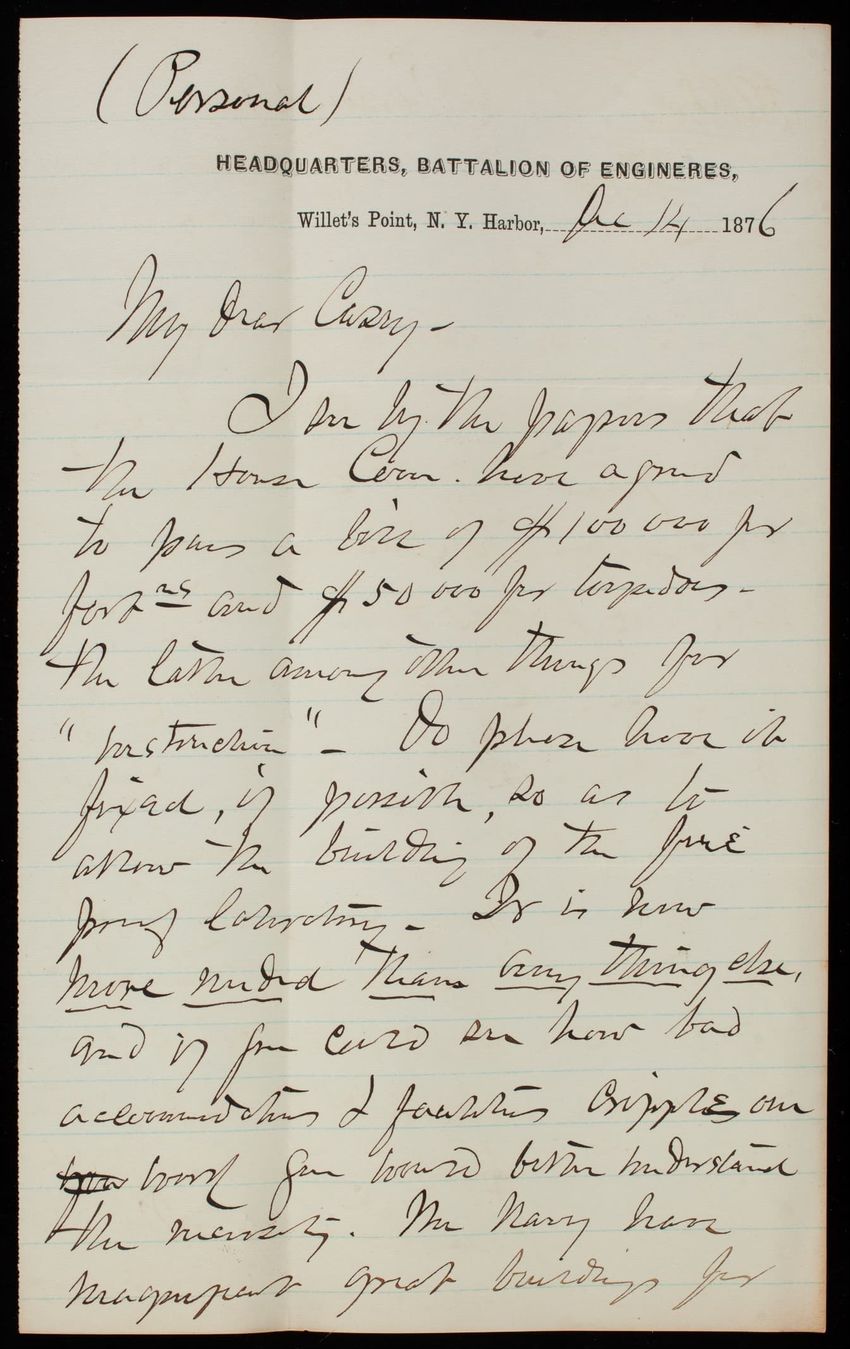 (Personal)
HEADQUARTERS, BATTALION OF ENGINERES,
Willet's Point, N. Y. Harbor, Dec 14 1876
My dear Casey -
I see by the papers that
the House Com. have agreed
to pass a bill of $100 000 for
fort ns and $50 000 for torpedoes -
the latter among other things for
"instruction" - Do please have it
fixed, if possible, so as to
allow the building of the fire
proof laboratory - It is now
more needed than any thing else,
and if you could see how bad
accommodations & facilities cripple our
work you would better understand
the necessity. The Navy have
magnificent great buildings for